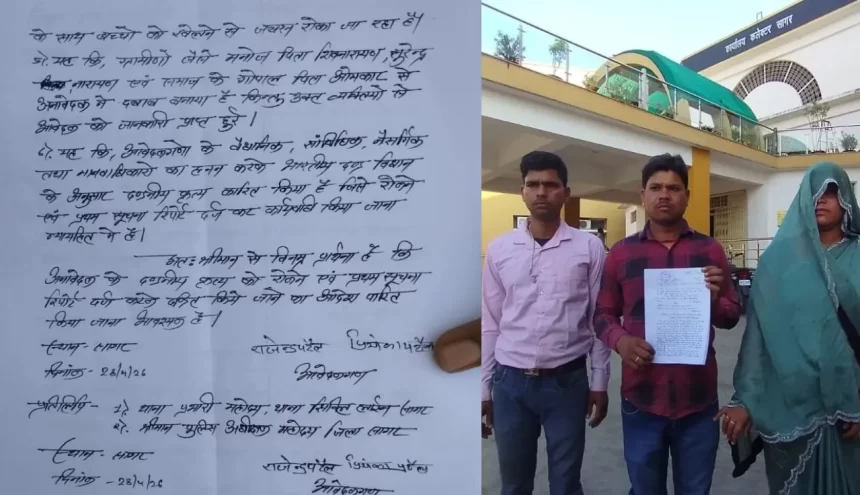 के साथ बच्चों को खेलने से जबरन रोका जा रहा है।
यह कि, ग्रामीणों जैसे मनोज पिता शिवनारायण, सुरेन्द्र
नारायण एवं समाज के गोपाल पिता ओमकार से
आवेदक ने दबाव बनाया है किन्तु उक्त व्यक्तियों से
आवेदक को जानकारी प्राप्त हुई।
यह कि, आवेदकगणों के वैधानिक, सांविधिक, नैसर्गिक
तथा मानवाधिकारों का हनन करके भारतीय दण्ड विधान
के अनुसार दण्डनीय कृत्य कारित किया है जिसे रोकने
एवं प्रथम सूचना रिपोर्ट दर्ज कर कार्यवाही किया जाना
न्यायहित में है।
अतः श्रीमान से विनम्र प्रार्थना है कि
आवेदक के दण्डनीय कृत्य को रोकने एवं प्रथम सूचना
रिपोर्ट दर्ज करने किये जाने का आदेश पारित
किया जाना आवश्यक है।
स्थान - सागर
राजेन्द्र पटेल प्रियंका पटेल
दिनांक - 28/4/26
आवेदकगण
प्रतिलिपि - 1) थाना प्रभारी महोदय, थाना सिविल लाईन सागर
2) श्रीमान पुलिस अधीक्षक महोदय जिला सागर
स्थान - सागर
राजेन्द्र पटेल प्रियंका पटेल
दिनांक - 28/4/26
आवेदकगण
कार्यालय कलेक्टर सागर